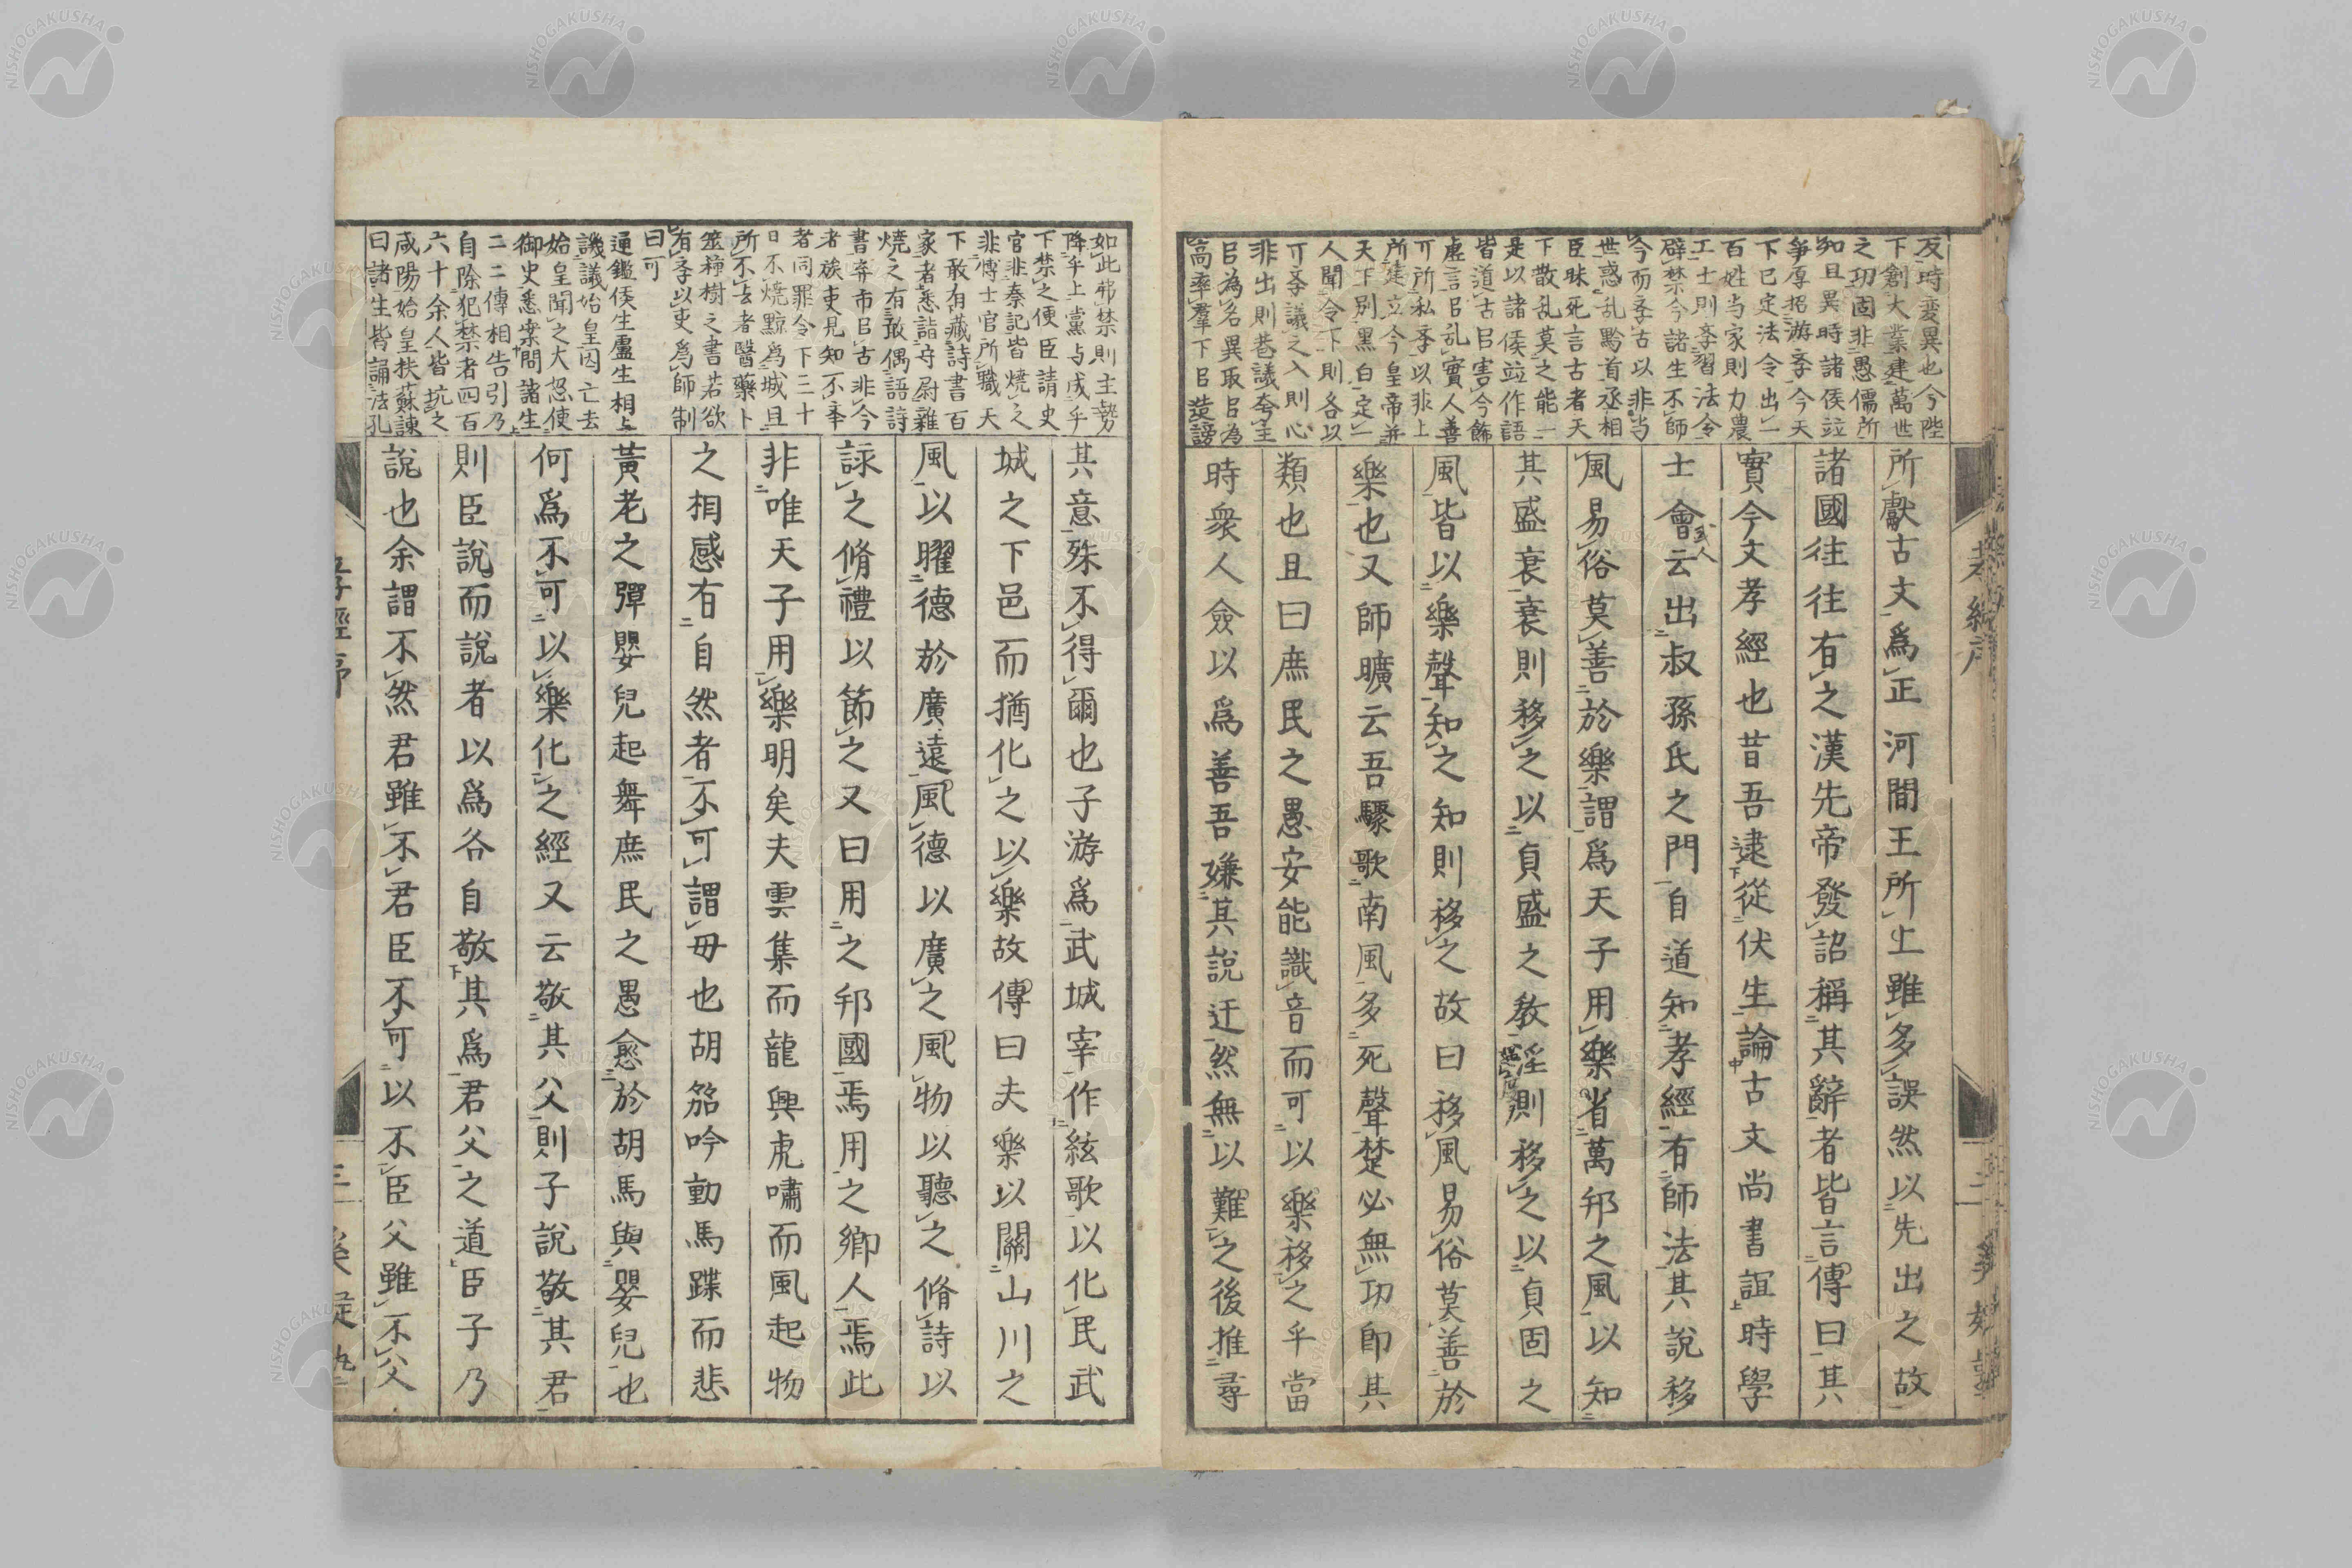 反時変異也今陛
下創大業建萬世
之功固非愚儒所
知且異時諸侯竝
爭厚招游斈今天
下已定法令出一
百姓当家則力農
工士則斈習法令
辟禁今諸生不師
今而斈古以非当
世惑乱黔首丞相
臣昧死言古者天
下散乱莫之能一
是以諸侯竝作語
皆道古㠯害今飾
虗言㠯乱實人善
所私斈以非上
所建立今皇帝并
天下別黒白定一
人聞令下則各以
斈議之入則心
非出則巷議夸主
㠯為名異取㠯為
高率羣下㠯造謗
所獻古文爲正河間王所上雖多誤然以先出之故
諸國往往有之漢先帝發詔稱其辭者皆言傳曰其
實今文孝經也昔吾逮從伏生論古文尚書誼時學
士會云出叔孫氏之門自道知孝經有師法其說移
風易俗莫善於樂謂爲天子用樂省萬邦之風以知
其盛衰衰則移之以貞盛之敎淫則移之以貞固之
風皆以樂聲知之知則移之故曰移風易俗莫善於
樂也又師曠云吾驟歌南風多死聲楚必無功卽其
類也且曰庶民之愚安能識音而可以樂移之乎當
時衆人僉以爲善吾嫌其說迂然無以難之後推尋
孝經序
如此弗禁則主勢
降乎上黨与成乎
下禁之便臣請史
官非秦記皆焼之
非博士官所職天
下敢有藏詩書百
家者悉詣守尉雜
焼之有敢偶語詩
書弃市㠯古非今
者族吏見知不挙
者同罪令下三十
日不焼黥爲城旦
所不去者醫藥卜
筮種樹之書若欲
有斈以吏爲師制
曰可
通鑑侯生盧生相与
譏議始皇因亡去
始皇聞之大怒使
御史悉案問諸生
二二傳相告引乃
自除犯禁者四百
六十余人皆坑之
咸陽始皇扶蘇諫
曰諸生皆誦法孔
其意殊不得爾也子游爲武城宰作絃歌以化民武
城之下邑而猶化之以樂故傳曰夫樂以關山川之
風以曜德於廣遠風德以廣之風物以聽之脩詩以
詠之脩禮以節之又曰用之邦國焉用之鄉人焉此
非唯天子用樂明矣夫雲集而龍興虎嘯而風起物
之相感有自然者不可謂毋也胡笳吟動馬蹀而悲
黃老之彈嬰兒起舞庶民之愚愈於胡馬與嬰兒也
何爲不可以樂化之經又云敬其父則子說敬其君
則臣說而說者以爲各自敬其爲君父之道臣子乃
說也余謂不然君雖不君臣不可以不臣父雖不父
孝經序
三